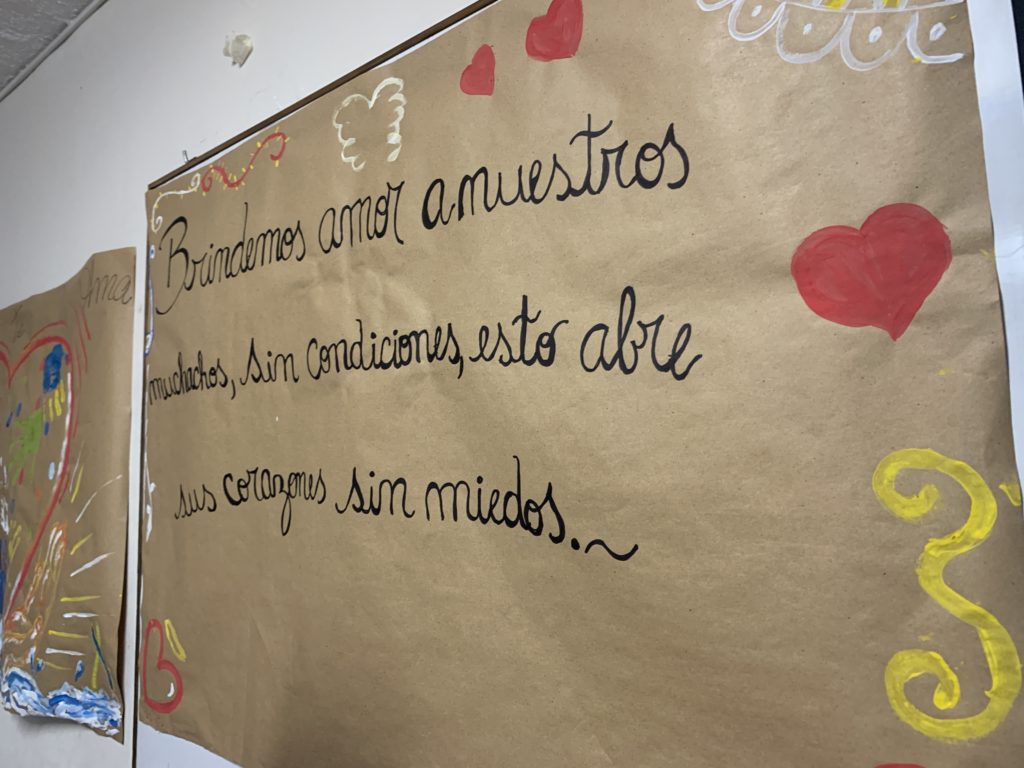 Brindemos amor a nuestros
muchachos, sin condiciones, esto abre
sus corazones sin miedos.~
Ama